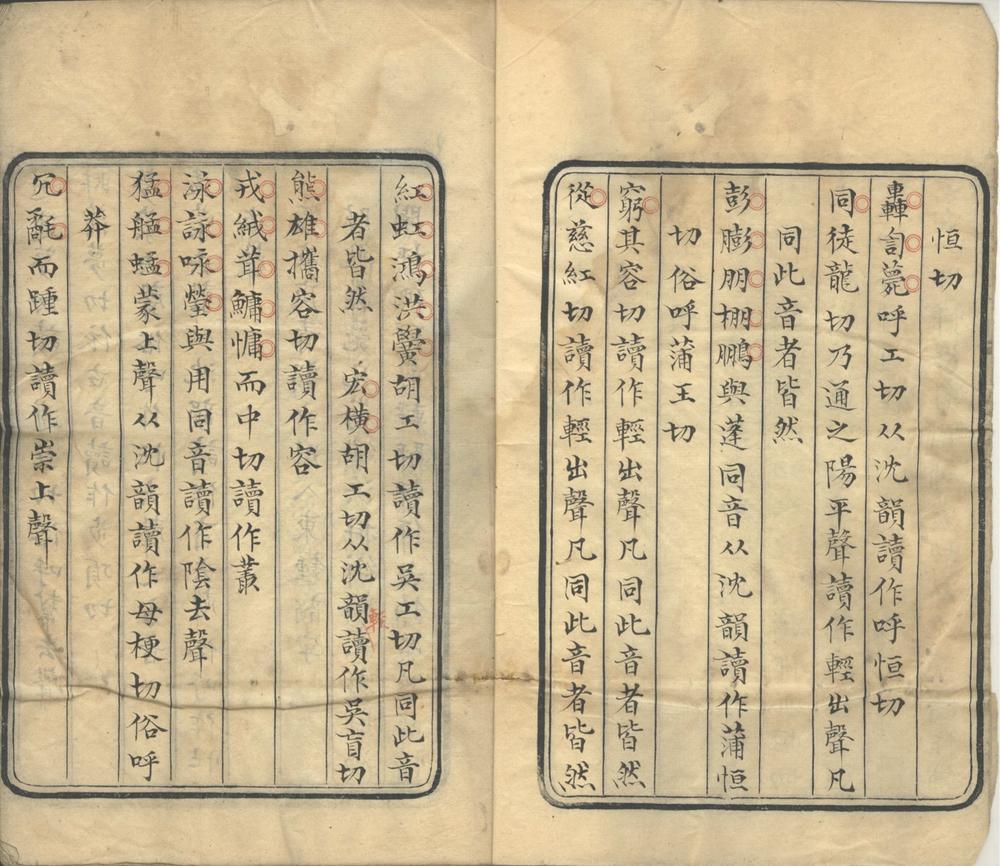 恒切
轟訇薨呼工切从沈韻讀作呼恒切
同徒龍切乃通之陽平聲讀作輕出聲凡
同此音者皆然
彭膨朋棚鵬與蓬同音从沈韻讀作蒲恒
切俗呼蒲王切
窮其容切讀作輕出聲凡同此音者皆然
從慈紅切讀作輕出聲凡同此音者皆然
紅虹鴻洪黌胡工切讀作吳工切凡同此音
者皆然 宏橫胡工切从沈韻讀作吳盲切
熊雄攜容切讀作容
戎絨茸鱅慵而中切讀作叢
泳詠咏瑩與用同音讀作陰去聲
猛艋蜢蒙上聲从沈韻讀作母梗切俗呼
莽
冗氄而踵切讀作崇上聲